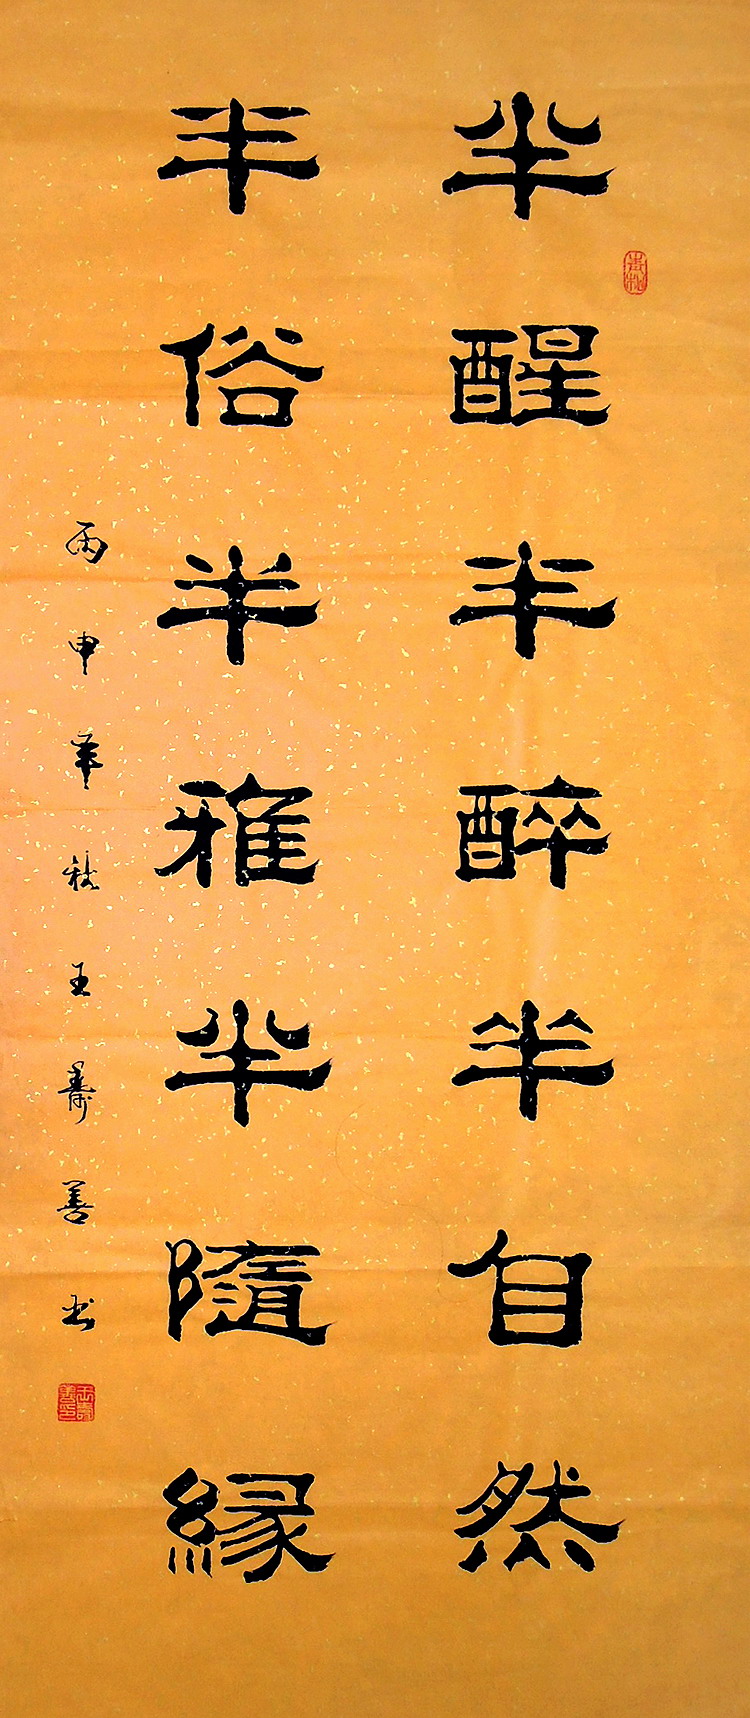 半醒半醉半自然
半俗半雅半隨緣
丙申年秋王壽善书